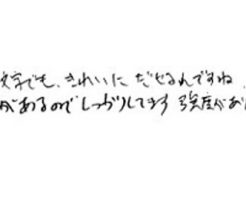 文字でも、きれいに だせるんですね
があるので しっかりしてます 強度があ